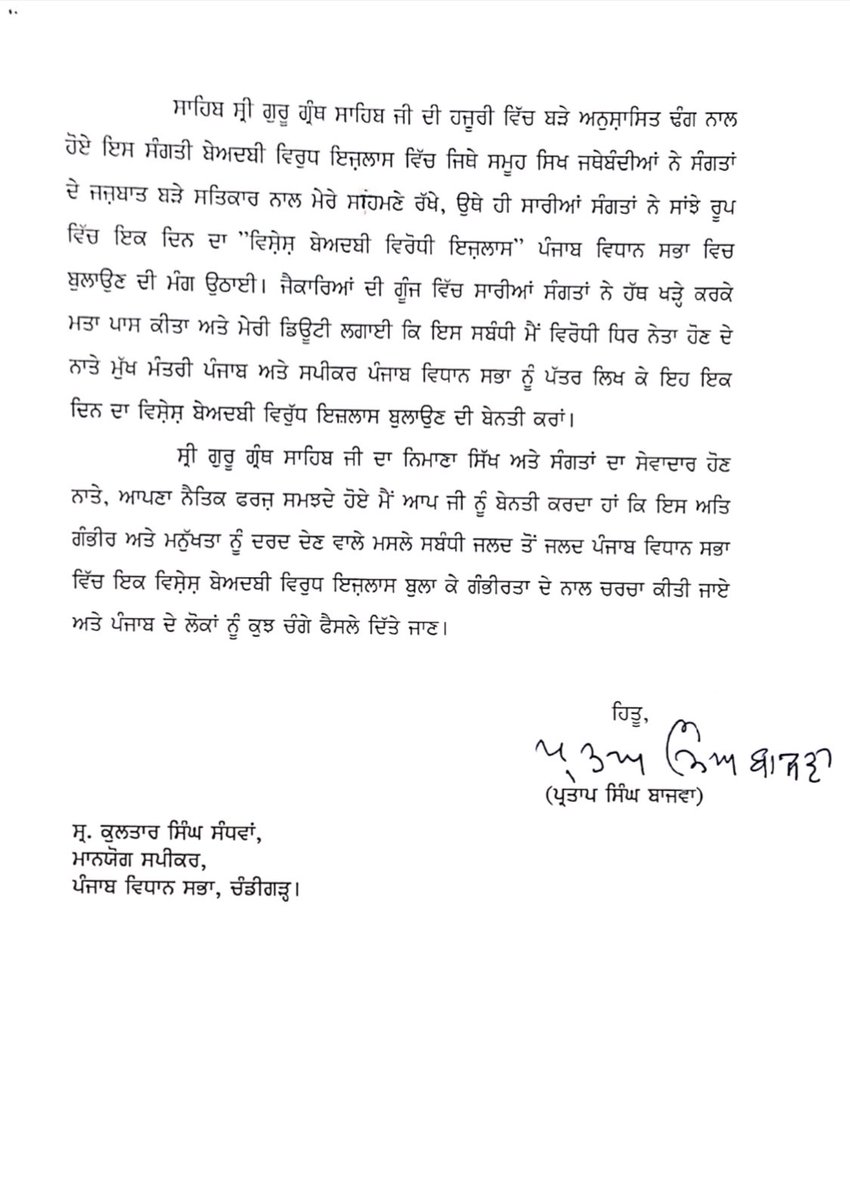 ਸਾਹਿਬ ਸ੍ਰੀ ਗੁਰੂ ਗ੍ਰੰਥ ਸਾਹਿਬ ਜੀ ਦੀ ਹਜ਼ੂਰੀ ਵਿੱਚ ਬੜੇ ਅਨੁਸ਼ਾਸਿਤ ਢੰਗ ਨਾਲ
ਹੋਏ ਇਸ ਸੰਗਤੀ ਬੇਅਦਬੀ ਵਿਰੁਧ ਇਜ਼ਲਾਸ ਵਿੱਚ ਜਿਥੇ ਸਮੂਹ ਸਿਖ ਜਥੇਬੰਦੀਆਂ ਨੇ ਸੰਗਤਾਂ
ਦੇ ਜਜ਼ਬਾਤ ਬੜੇ ਸਤਿਕਾਰ ਨਾਲ ਮੇਰੇ ਸਾਹਮਣੇ ਰੱਖੇ, ਉਥੇ ਹੀ ਸਾਰੀਆਂ ਸੰਗਤਾਂ ਨੇ ਸਾਂਝੇ ਰੂਪ
ਵਿੱਚ ਇਕ ਦਿਨ ਦਾ ”ਵਿਸ਼ੇਸ਼ ਬੇਅਦਬੀ ਵਿਰੋਧੀ ਇਜ਼ਲਾਸ” ਪੰਜਾਬ ਵਿਧਾਨ ਸਭਾ ਵਿਚ
ਬੁਲਾਉਣ ਦੀ ਮੰਗ ਉਠਾਈ। ਜੈਕਾਰਿਆਂ ਦੀ ਗੂੰਜ ਵਿੱਚ ਸਾਰੀਆਂ ਸੰਗਤਾਂ ਨੇ ਹੱਥ ਖੜ੍ਹੇ ਕਰਕੇ
ਮਤਾ ਪਾਸ ਕੀਤਾ ਅਤੇ ਮੇਰੀ ਡਿਊਟੀ ਲਗਾਈ ਕਿ ਇਸ ਸਬੰਧੀ ਮੈਂ ਵਿਰੋਧੀ ਧਿਰ ਨੇਤਾ ਹੋਣ ਦੇ
ਨਾਤੇ ਮੁੱਖ ਮੰਤਰੀ ਪੰਜਾਬ ਅਤੇ ਸਪੀਕਰ ਪੰਜਾਬ ਵਿਧਾਨ ਸਭਾ ਨੂੰ ਪੱਤਰ ਲਿਖ ਕੇ ਇਹ ਇਕ
ਦਿਨ ਦਾ ਵਿਸ਼ੇਸ਼ ਬੇਅਦਬੀ ਵਿਰੁੱਧ ਇਜ਼ਲਾਸ ਬੁਲਾਉਣ ਦੀ ਬੇਨਤੀ ਕਰਾਂ।
ਸ੍ਰੀ ਗੁਰੂ ਗ੍ਰੰਥ ਸਾਹਿਬ ਜੀ ਦਾ ਨਿਮਾਣਾ ਸਿੱਖ ਅਤੇ ਸੰਗਤਾਂ ਦਾ ਸੇਵਾਦਾਰ ਹੋਣ
ਨਾਤੇ, ਆਪਣਾ ਨੈਤਿਕ ਫਰਜ਼ ਸਮਝਦੇ ਹੋਏ ਮੈਂ ਆਪ ਜੀ ਨੂੰ ਬੇਨਤੀ ਕਰਦਾ ਹਾਂ ਕਿ ਇਸ ਅਤਿ
ਗੰਭੀਰ ਅਤੇ ਮਨੁੱਖਤਾ ਨੂੰ ਦਰਦ ਦੇਣ ਵਾਲੇ ਮਸਲੇ ਸਬੰਧੀ ਜਲਦ ਤੋਂ ਜਲਦ ਪੰਜਾਬ ਵਿਧਾਨ ਸਭਾ
ਵਿੱਚ ਇਕ ਵਿਸ਼ੇਸ਼ ਬੇਅਦਬੀ ਵਿਰੁਧ ਇਜ਼ਲਾਸ ਬੁਲਾ ਕੇ ਗੰਭੀਰਤਾ ਦੇ ਨਾਲ ਚਰਚਾ ਕੀਤੀ ਜਾਏ
ਅਤੇ ਪੰਜਾਬ ਦੇ ਲੋਕਾਂ ਨੂੰ ਕੁਝ ਚੰਗੇ ਫੈਸਲੇ ਦਿੱਤੇ ਜਾਣ।
ਹਿਤੂ,
(ਪ੍ਰਤਾਪ ਸਿੰਘ ਬਾਜਵਾ)
ਸ੍ਰ. ਕੁਲਤਾਰ ਸਿੰਘ ਸੰਧਵਾਂ,
ਮਾਨਯੋਗ ਸਪੀਕਰ,
ਪੰਜਾਬ ਵਿਧਾਨ ਸਭਾ, ਚੰਡੀਗੜ੍ਹ।